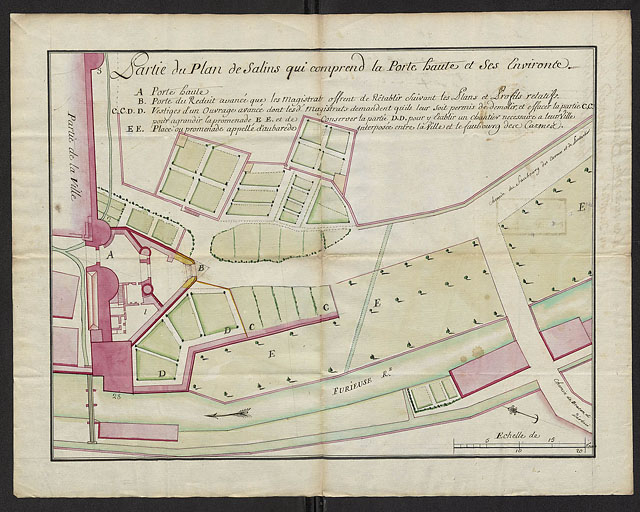 Partie du Plan de Salins qui comprend la Porte haute et Ses Environts
A Porte haute
B. Porte du Reduit avancé que les Magistrats offrent de Rétablir Suivant les Plans et Profils relatifs
C.C.D.D. Vestiges d'un Ouvrage avancé dont les d. Magistrats demandent qu'ils leur soit permis de demolir, et effacer la partie C.C.
pour agrandir la promenade E.E. et de Conserver la partie D.D. pour y Etablir un chantier necessaire a leur Ville
E E. Place ou promenade appellé interposée entre la Ville et le fauxbourg
Partie de la Ville
5
A
B
E
E
E
C
C
D
D
l
25
FURIEUSE R.
chemin du Fauxbourg des
Echelle de
5
10
15
20